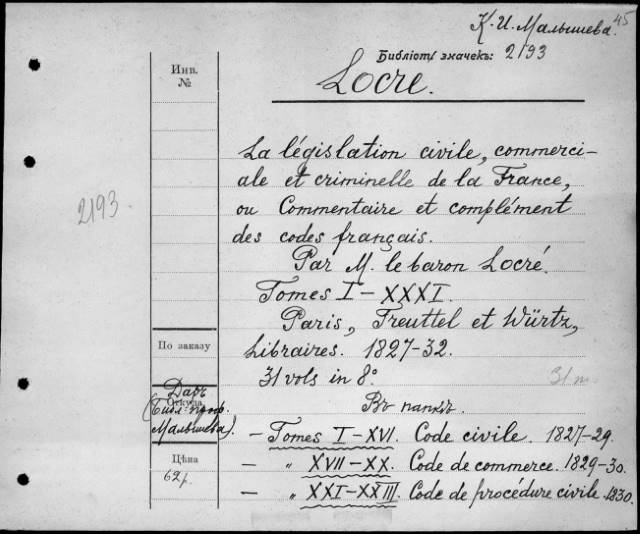 45
К. И. Малышева.
Библіот. значекъ: 2193
Locré.
Инв.
№
La législation civile, commerci-
ale et criminelle de la France,
2193.
ou Commentaire et complément
des codes français.
Par M. le baron Locré.
Tomes I–XXXI.
Paris, Treuttel et Würtz,
По заказу
Libraires. 1827-32.
31 vols in 8°.
31 т.
Даръ
Откуда
(Библ. проф.
Малышева).
Въ папкѣ.
– Tomes I–XVI. Code civile. 1827-29.
Цѣна
62 р.
– „ XVII–XX. Code de commerce. 1829-30.
– „ XXI–XXIII. Code de procédure civile. 1830.